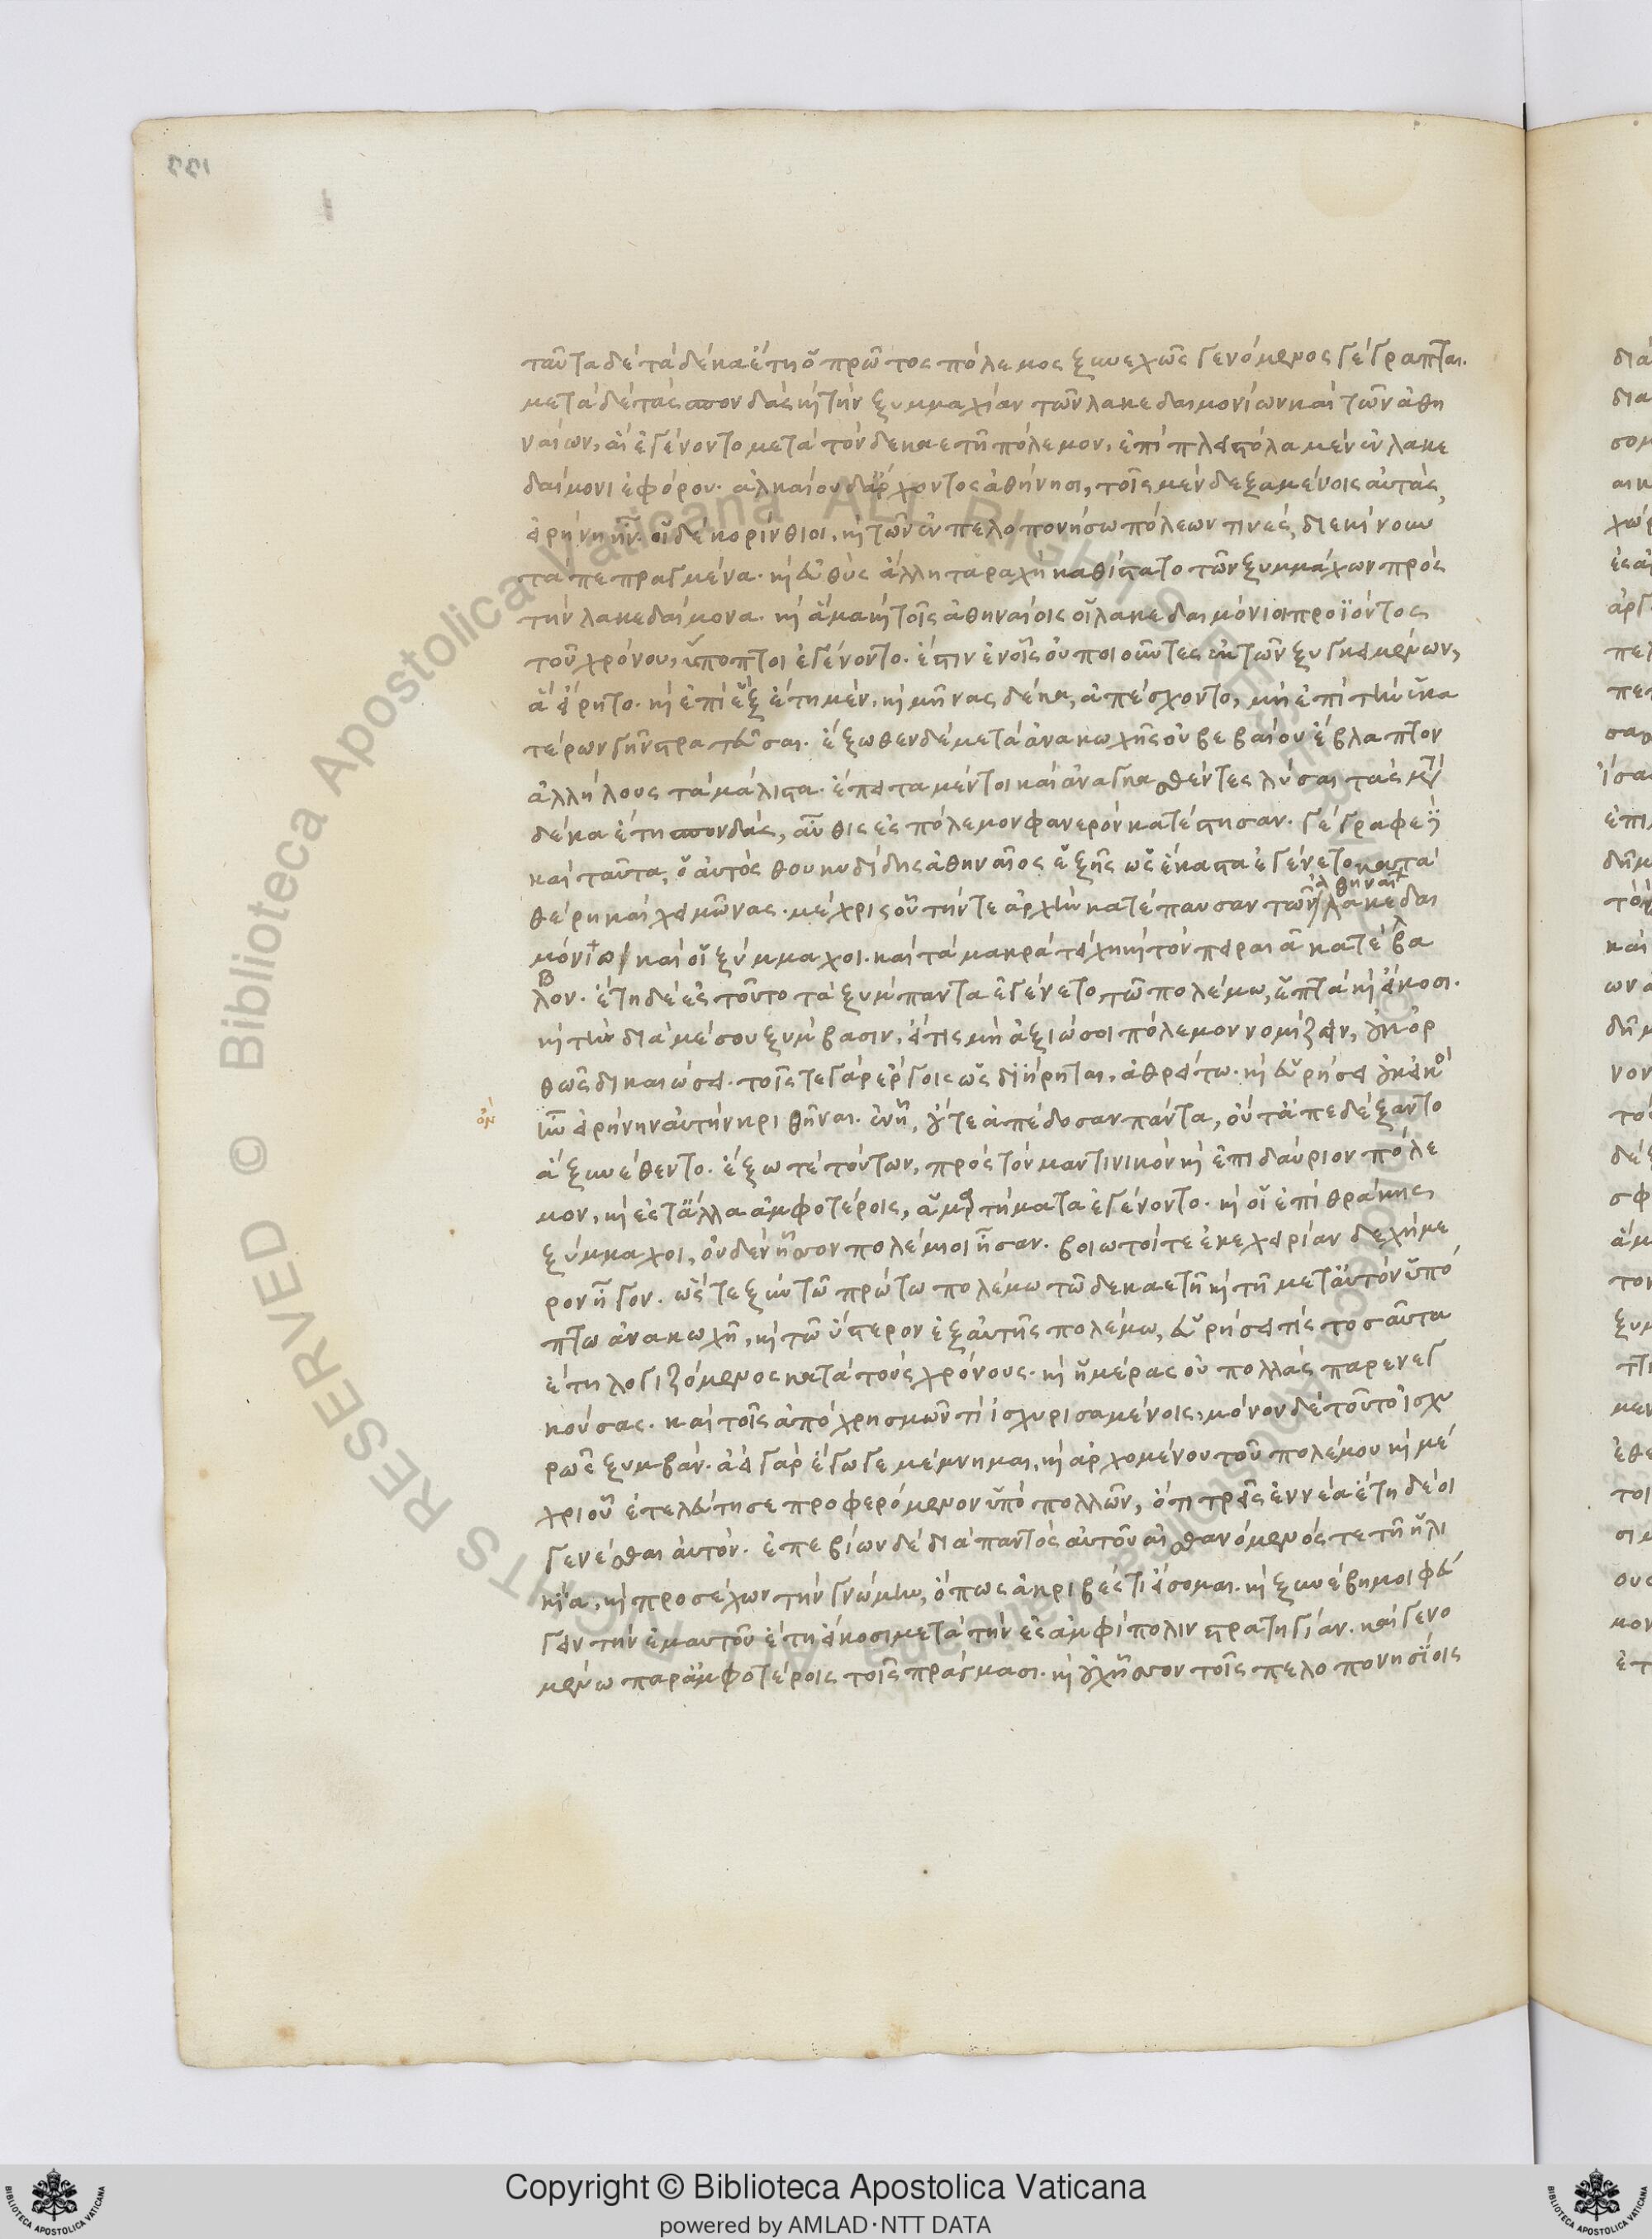 ταῦτα δὲ τὰ δέκα ἔτη ὁ πρῶτος πόλεμος ξυνεχῶς γενόμενος γέγραπται.
μετὰ δὲ τὰς σπονδὰς καὶ τὴν ξυμμαχίαν τῶν λακεδαιμονίων καὶ τῶν ἀθη
ναίων, αἳ ἐγένοντο μετὰ τὸν δεκαετῆ πόλεμον, ἐπὶ πλειστόλα μὲν ἐν λακε
δαίμονι ἐφόρου· ἀλκαίου δ' ἄρχοντος ἀθήνησι, τοῖς μὲν δεξαμένοις αὐτάς,
εἰρήνη ἦν. οἱ δὲ κορίνθιοι, καὶ τῶν ἐν πελοπονήσω πόλεων τινές, διεκίνουν
τὰ πεπραγμένα· καὶ εὐθὺς ἄλλη ταραχὴ καθίστατο τῶν ξυμμάχων πρὸς
τὴν λακεδαίμονα. καὶ ἅμα καὶ τοῖς ἀθηναίοις οἱ λακεδαιμόνιοι προϊόντος
τοῦ χρόνου, ὕποπτοι ἐγένοντο. ἔστιν ἐν οἷς οὐ ποιοῦντες ἐκ τῶν ξυγκειμένων,
ἃ εἴρητο. καὶ ἐπὶ ἓξ ἔτη μὲν, καὶ μῆνας δέκα, ἀπέσχοντο, μὴ ἐπὶ τὴν ἑκα
τέρων γῆν στρατεῦσαι. ἔξωθεν δὲ μετὰ ἀνακωχῆς οὐ βεβαίου ἔβλαπτον
ἀλλήλους τὰ μάλιστα. ἔπειτα μέντοι καὶ ἀναγκασθέντες λῦσαι τὰς μετὰ
δέκα ἔτη σπονδάς, αὖθις ἐς πόλεμον φανερὸν κατέστησαν. γέγραφε δὲ
καὶ ταῦτα, ὁ αὐτὸς θουκυδίδης ἀθηναῖος ἑξῆς ὡς ἕκαστα ἐγένετο κατὰ
θέρη καὶ χειμῶνας. μέχρις οὗ τήν τε ἀρχὴν κατέπαυσαν τῶν ἀθηναίων λακεδαι
μόνιοι καὶ οἱ ξύμμαχοι. καὶ τὰ μακρὰ τείχη καὶ τὸν πειραιᾶ κατέλαβα
βον. ἔτη δὲ ἐς τοῦτο τὰ ξύμπαντα ἐγένετο τῶ πολέμω, ἑπτὰ καὶ εἴκοσι.
καὶ τὴν διὰ μέσου ξύμβασιν, εἴ τις μὴ ἀξιώσοι πόλεμον νομίζειν, οὐκ ὀρ
θῶς δικαιώσει. τοῖς τε γὰρ ἔργοις ὡς διῄρηται, ἀθρείτω. καὶ εὑρήσει οὐκ εἰκὸς
ὂν
ὂν εἰρήνην αὐτὴν κριθῆναι. ἐν ᾗ, οὔτε ἀπέδοσαν πάντα, οὔτ' ἀπεδέξαντο
ἃ ξυνέθεντο. ἔξω τε τούτων, πρὸς τὸν μαντινικὸν καὶ ἐπιδαύριον πόλε
μον, καὶ ἐς τἄλλα ἀμφοτέροις, ἁμαρτήματα ἐγένοντο. καὶ οἱ ἐπὶ θράκης
ξύμμαχοι, οὐδὲν ἧσσον πολέμιοι ἦσαν. βοιωτοί τε ἐκεχειρίαν δεχήμε
ρον ἦγον. ὥστε ξὺν τῶ πρώτω πολέμω τῶ δεκαετῆ καὶ τῆ μετ' αὐτὸν ὑπό
πτω ἀνακωχῆ, καὶ τῶ ὕστερον ἐξ αὐτῆς πολέμω, εὑρήσει τις τοσαῦτα
ἔτη λογιζόμενος κατὰ τοὺς χρόνους. καὶ ἡμέρας οὐ πολλὰς παρενεγ
κούσας. καὶ τοῖς ἀπὸ χρησμῶν τί ἰσχυρισαμένοις, μόνον δὲ τοῦτο ἰσχυ
ρῶς ξυμβάν. ἀεὶ γὰρ ἔγωγε μέμνημαι, καὶ ἀρχομένου τοῦ πολέμου καὶ μέ
χρι οὗ ἐτελεύτησε προφερόμενον ὑπὸ πολλῶν, ὅτι τρεῖς ἐννέα ἔτη δέοι
γενέσθαι αὐτόν. ἐπεβίων δὲ διὰ παντὸς αὐτοῦ αἰσθανόμενός τε τῆ ἡλι
κία, καὶ προσέχων τὴν γνώμην, ὅπως ἀκριβές τι εἴσομαι. καὶ ξυνέβη μοι φεύ
γειν τὴν ἐμαυτοῦ ἔτη εἴκοσι μετὰ τὴν ἐς ἀμφίπολιν στρατηγίαν. καὶ γενο
μένω παρ' ἀμφοτέροις τοῖς πράγμασι. καὶ οὐχ ἧσσον τοῖς πελοπονησίοις
Copyright © Biblioteca Apostolica Vaticana
powered by AMLAD·NTT DATA